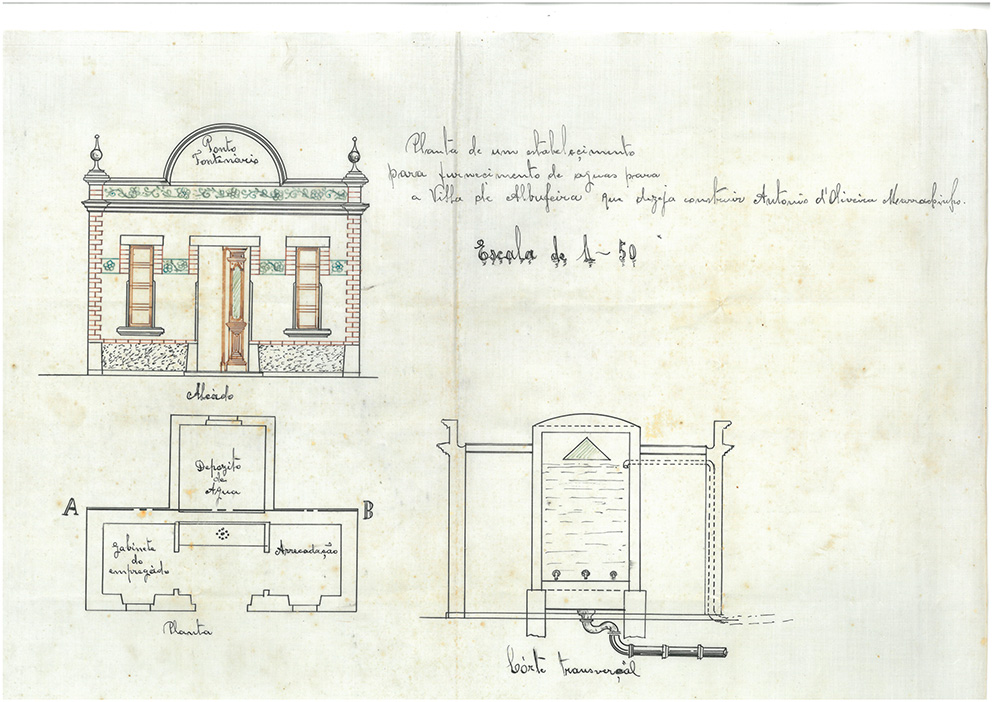 Ponto
Fontenario
Planta de um estabeleçimento
para furnecimento de aguas para
a Villa de Albufeira que dezeja construir Antonio d'Oliveira
Escala de 1~50
Alçádo
Depozito
de
Agua
A
B
Gabinete
do
empregádo
Arrecadação
Planta
Córte transverçál